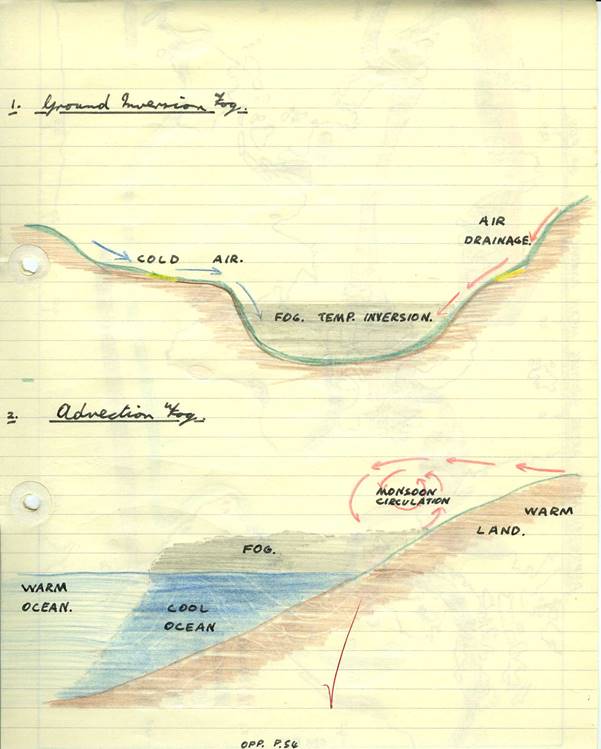 1. Ground Inversion Fog.
AIR
DRAINAGE.
COLD AIR.
FOG. TEMP. INVERSION.
2. Advection Fog.
MONSOON
CIRCULATION
WARM
LAND.
FOG.
WARM
OCEAN.
COOL
OCEAN
OPP. P.54